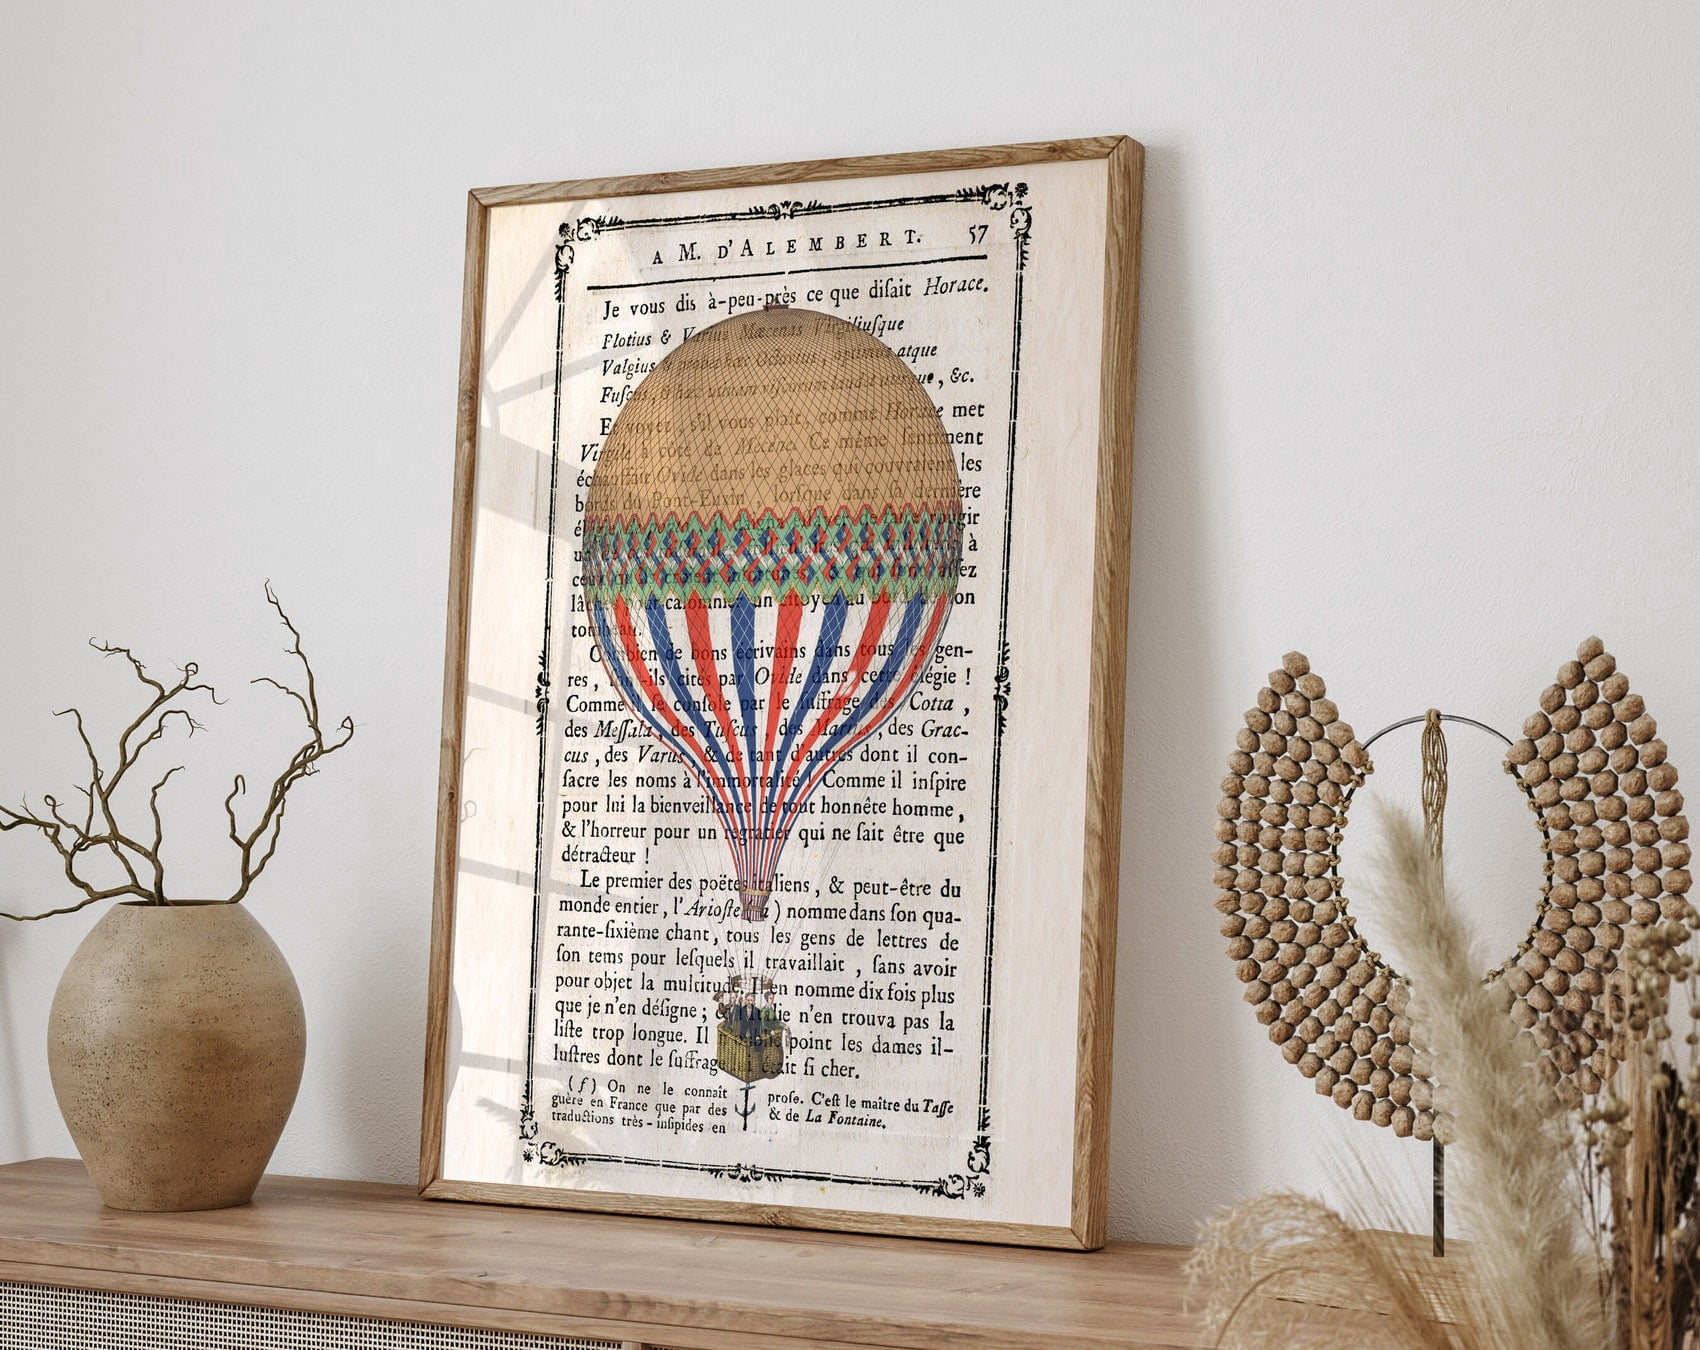 A M. D'ALEMBERT. 57
Je vous dis à-peu-près ce que diſait Horace.
Plotius & Varius Mæcenas Virgiliuſque
Valgius & probet hæc Octavius, optimus atque
Fuſcus, & hæc utinam viſcorum laudet uterque, &c.
Envoyez s'il vous plaît, comme Horace met
Virgile à côté de Mecène. Ce même ſentiment
échauffait Ovide dans les glaces qui couvraient les
bords du Pont-Euxin lorſque dans ſa dernière
rougir
à
ceux qu'ils croient infortunés, & qui ſont aſſez
lâches pour calomnier un citoyen au bord de ſon
tombeau.
Combien de bons écrivains dans tous les gen-
res, ſont-ils cités par Ovide dans cette élégie !
Comme il ſe conſole par le ſuffrage des Cotta,
des Meſſala, des Tuſcus, des Marius, des Grac-
cus, des Varus, & de tant d'autres dont il con-
ſacre les noms à l'immortalité ! Comme il inſpire
pour lui la bienveillance de tout honnête homme,
& l'horreur pour un regratier qui ne ſait être que
détracteur !
Le premier des poëtes italiens, & peut-être du
monde entier, l'Arioſte ) nomme dans ſon qua-
rante-ſixième chant, tous les gens de lettres de
ſon tems pour leſquels il travaillait, ſans avoir
pour objet la multitude. Il en nomme dix fois plus
que je n'en déſigne ; & l'Italie n'en trouva pas la
liſte trop longue. Il point les dames il-
luſtres dont le ſuffrage était ſi cher.
(f) On ne le connaît
guère en France que par des
traductions très-inſipides en
proſe. C'eſt le maître du Taſſe
& de La Fontaine.